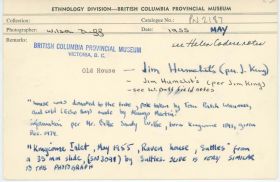 ETHNOLOGY DIVISION—BRITISH COLUMBIA PROVINCIAL MUSEUM
Collection
Catalogue No.: PN 2187
Photographer: Wilson Duff
Date: 1955 MAY
Remarks:
see Helen Codere notes
BRITISH COLUMBIA PROVINCIAL MUSEUM
VICTORIA, B. C.
Old House — Jim Humchit's (per J. King)
- Jim Humchit's (per Jim King)
- see W. Duff field notes
"House was donated to the tribe, pole taken by Tom Patch Wawanus,
and sold (Echo Bay) made by Mungo Martin"
Information per Mr. Billie Sandy Willie, born Kingcome 1893, given
Dec. 1974.
"Kingcome Inlet, May 1955, Raven house, Suttles" from
a 35mm slide, (SN 3098) by Suttles. SLIDE IS VERY SIMILAR
TO THIS PHOTOGRAPH